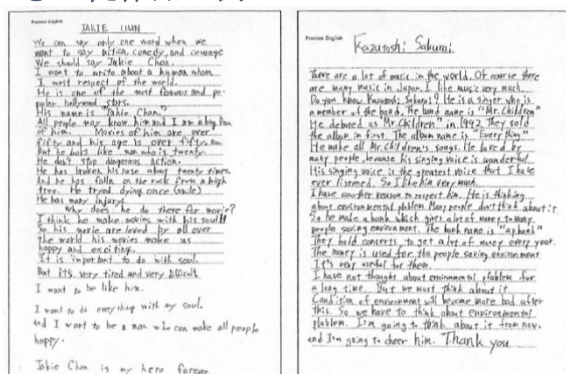 Precious English
JAKIE CHAN
We can say only one word when we
want to say action, comedy, and courage
We should say Jakie Chan.
I want to write about a human whom
I most respect of the world.
He is one of the most famous and po-
pular hollywood stars.
His name is "Jakie Chan."
All people may know him and I am a big fan
of him. Movies of him are over
fifty and his age is over fifty, too
But he looks like man who is twenty.
He don't stop dangerous action.
He has broken his nose about twenty times.
And he has falln on the rock from a high
tree. He tryed dying once (smile)
He has many injurys
Why does he do there for movie?
I think he make movies with his soul!!
So his movie are loved by all over
the world his movies make us
happy and exciting.
It is important to do with soul.
But it's very tired and very difficult.
I want to be like him.
I want to do everything with my soul.
And I want to be a man who can make all people
happy.
Jakie Chan is my hero forever.
Precious English
Kazutoshi Sakurai
There are a lot of music in the world. Of course there
are many music in Japan. I like music very much.
Do you know Kazutoshi Sakurai? He is a singer who is
a member of the band. The band name is "Mr. Children"
He debuted as "Mr. Children" in 1992. They sold
the album in first. The album name is "Every thing"
He make all Mr. Children's songs. He loved by
many people, because his singing voice is wonderful
His singing voice is the greatest voice that I have
ever listened. So I like him very much.
I have another reason to respect him. He is thinking
about environmental problem. Many people don't think about it
So he made a bank which gives a lot of money to many
people saving environment. The bank name is "ap bank"
They hold concerts, to get a lot of money every year.
The money is used for the people saving environment
It's very useful for them.
I have not thought about environmental problem for
a long time. But we must think about it
Condition of environment will become more bad after
this. So we have to think about environmental
problem. I'm going to think about it from now.
and I'm going to cheer him. Thank you